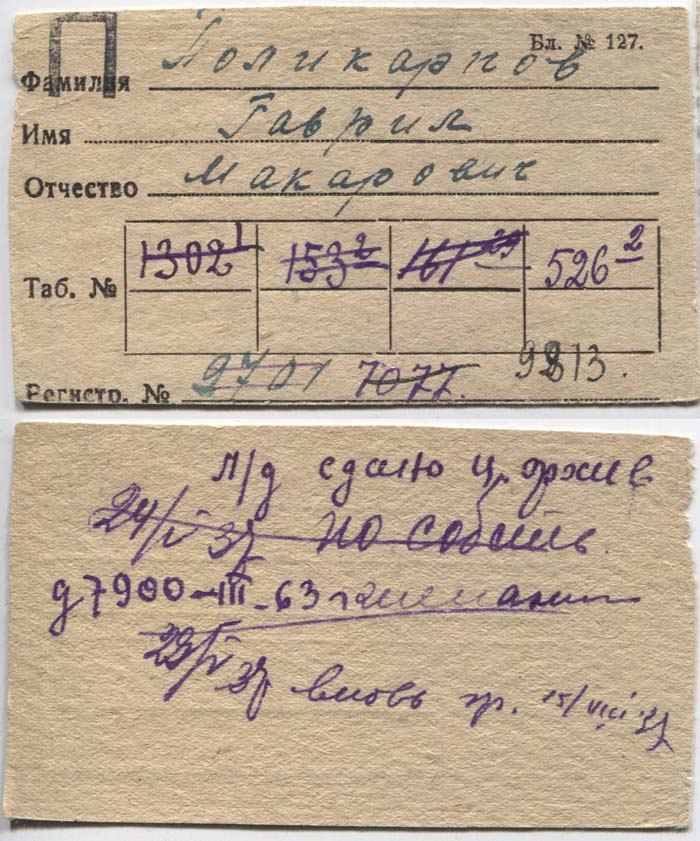 П
Бл. № 127.
Фамилия Поликарпов
Имя Гаврил
Отчество Макарович
Таб. № 1302¹ 153² 161²⁹ 526²
Регистр. № 9701 7077. 9813.
л/д сдано ц. архив
24/V 37 по собств.
д 7900-III-63г
29/V 37 вновь пр. 15/VIII 37